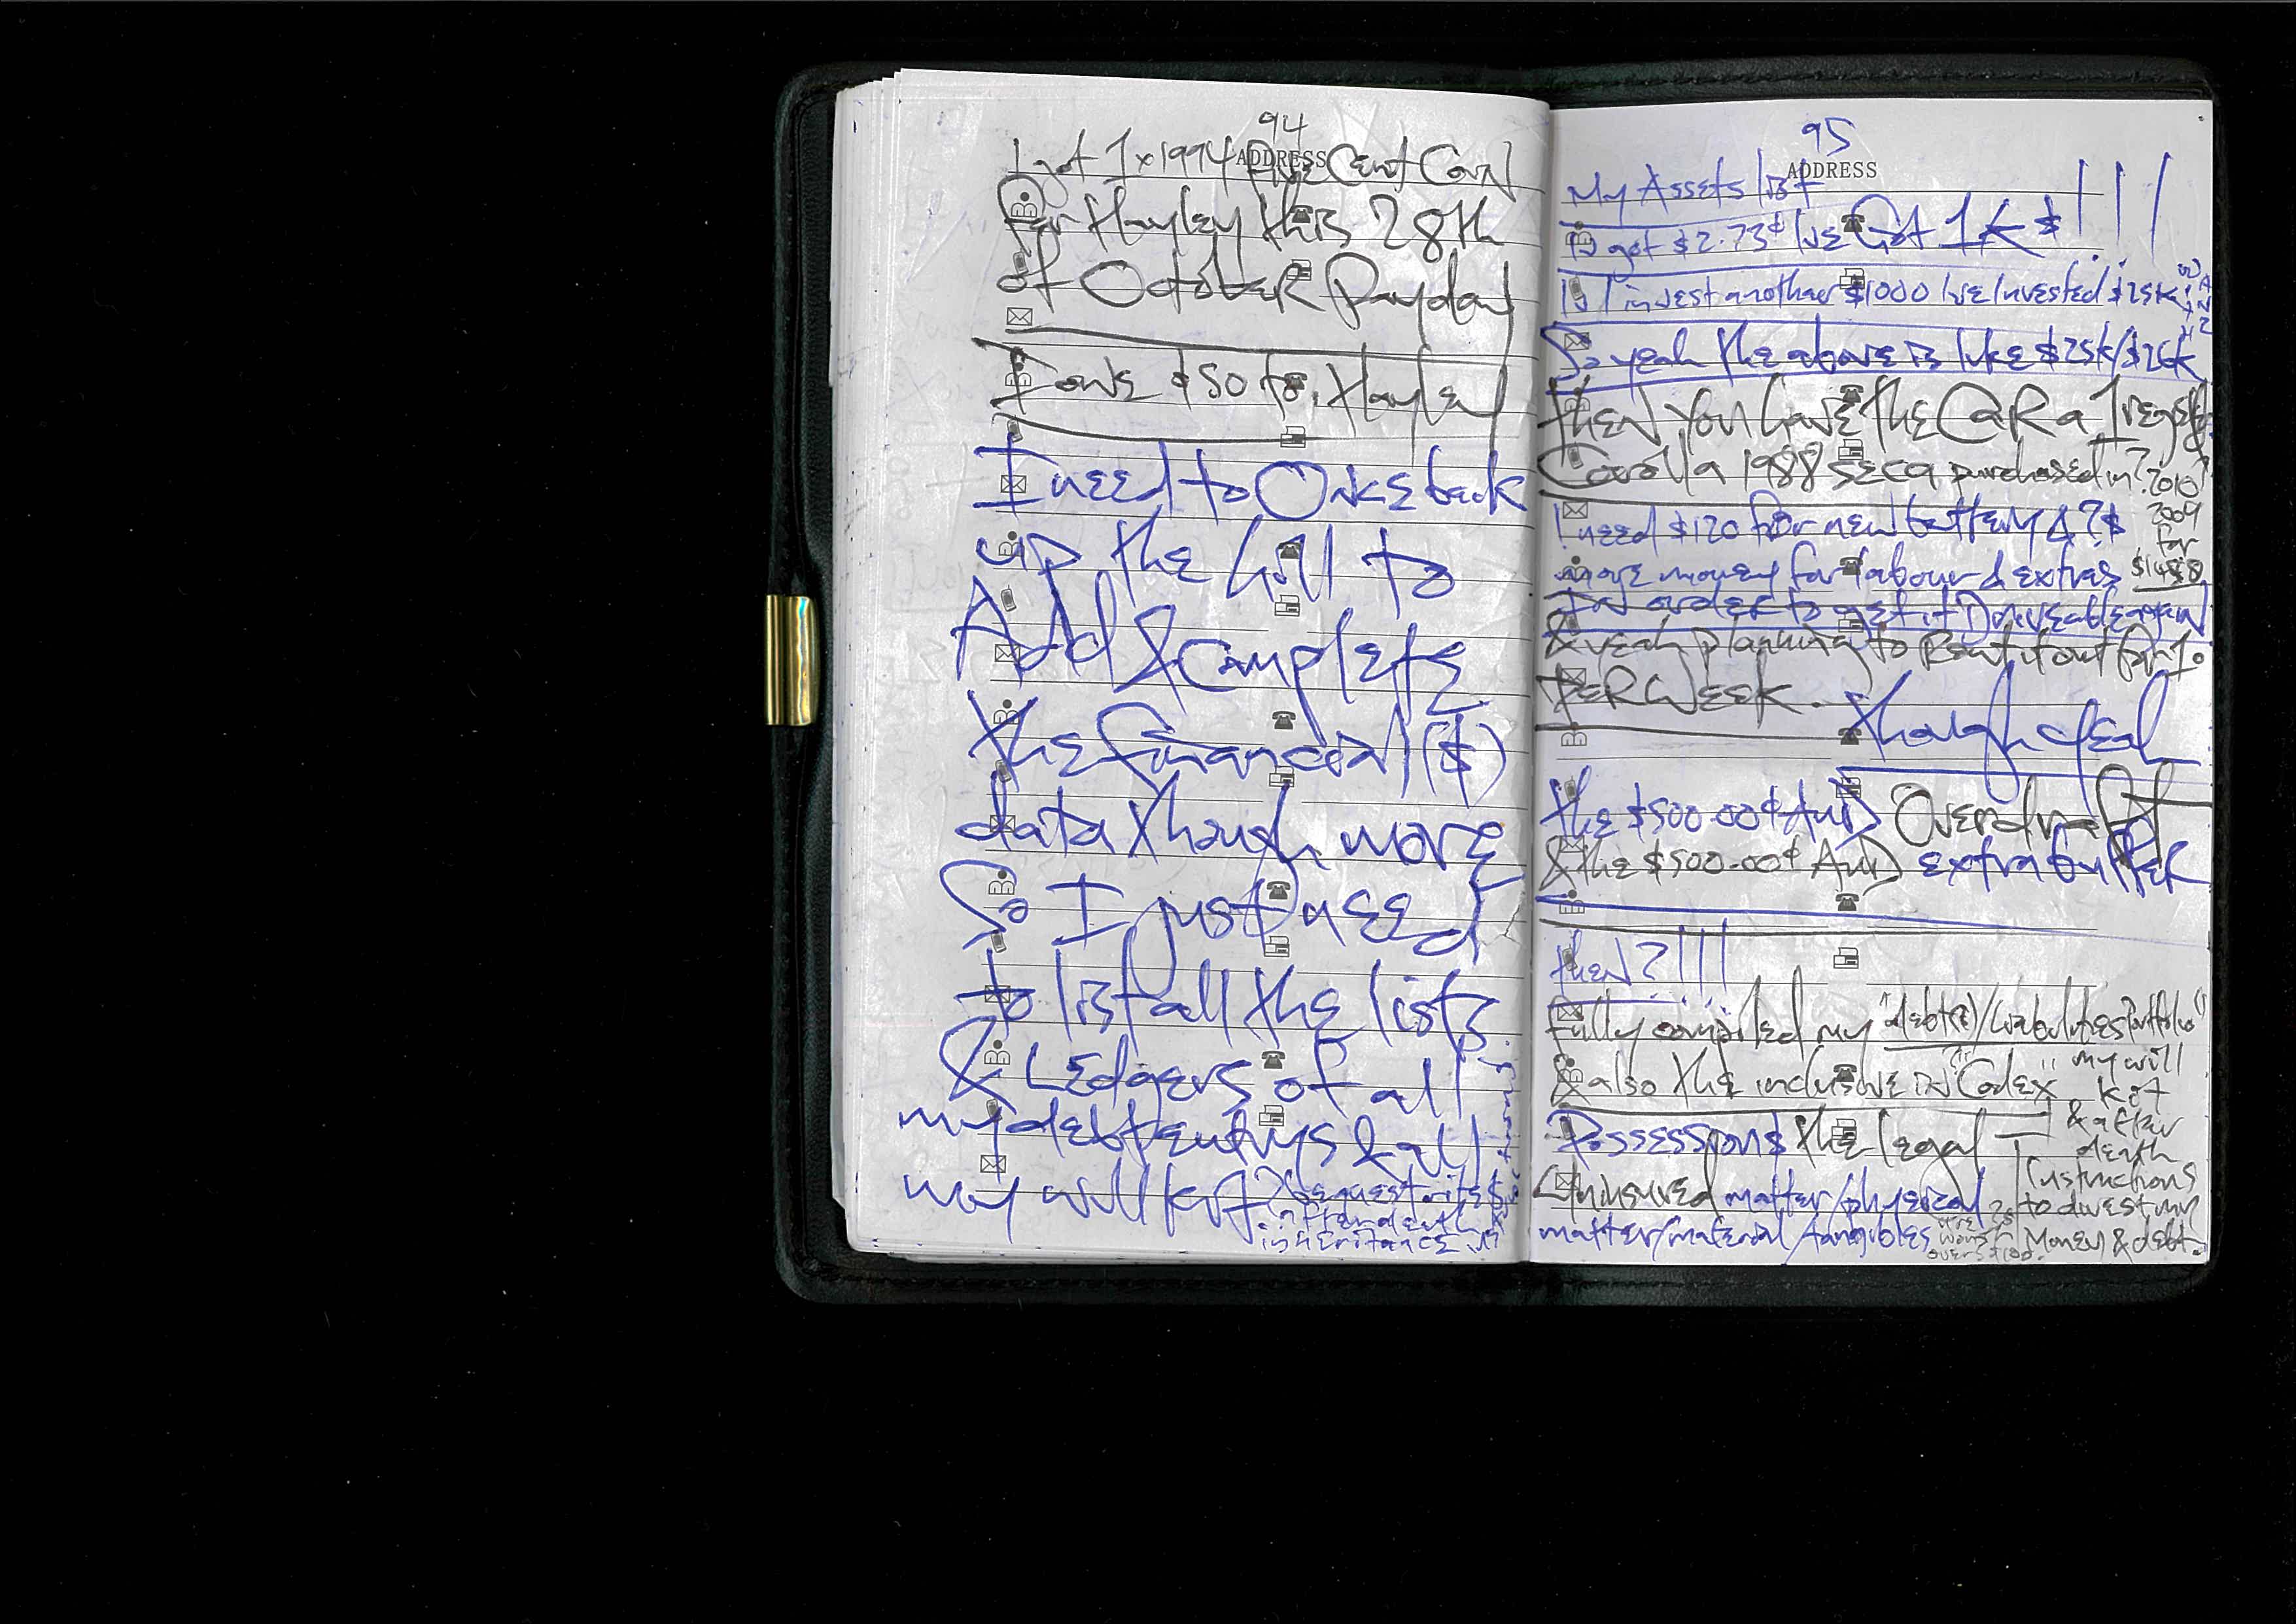 94
ADDRESS
I got 1x1994 Five Cent Coin
For Hayley this 28th
of October Payday
I owe $50 to Hayley
I need to once back
up the hill to
Add & Complete
the financial ($)
data though more
So I just need
to list all the lists
& Ledgers of all
my debt entrys & all
my will kot
?bequest
after death
inheritance
95
ADDRESS
My Assets list
I got $2.73¢ I've Got 1K $!!!
I invest another $1000 I've Invested $25K
WITH
ANZ
So yeah the above is like $25k/$26k
then you have the CaR a
Corolla 1988 Seca purchased in? 2010?
2009
for
I need $120 for new battery & ?$
more money for labour & extras
In order to get it Driveable again
& yeah planning to Rent it out for 1.
PER WEEK.
though yeah
the $500.00¢ AUD Overdraft
& the $500.00¢ AUD extra buffer
then?!!!
fully compiled my "debt(s)/Liabilities Portfolio"
& also the inclusive in "Codex"
my will
kot
& after
death
Instructions
to divest my
Money & debt.
Possessions the legal
Uninsured matter/physical
matter/material/tangibles